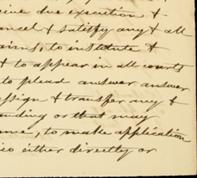 due execution &
cancel & satisfy any & all
to institute &
& to appear in all courts
to plead answer answer
assign & transfer any &
ending or that may
to make application
either directly or